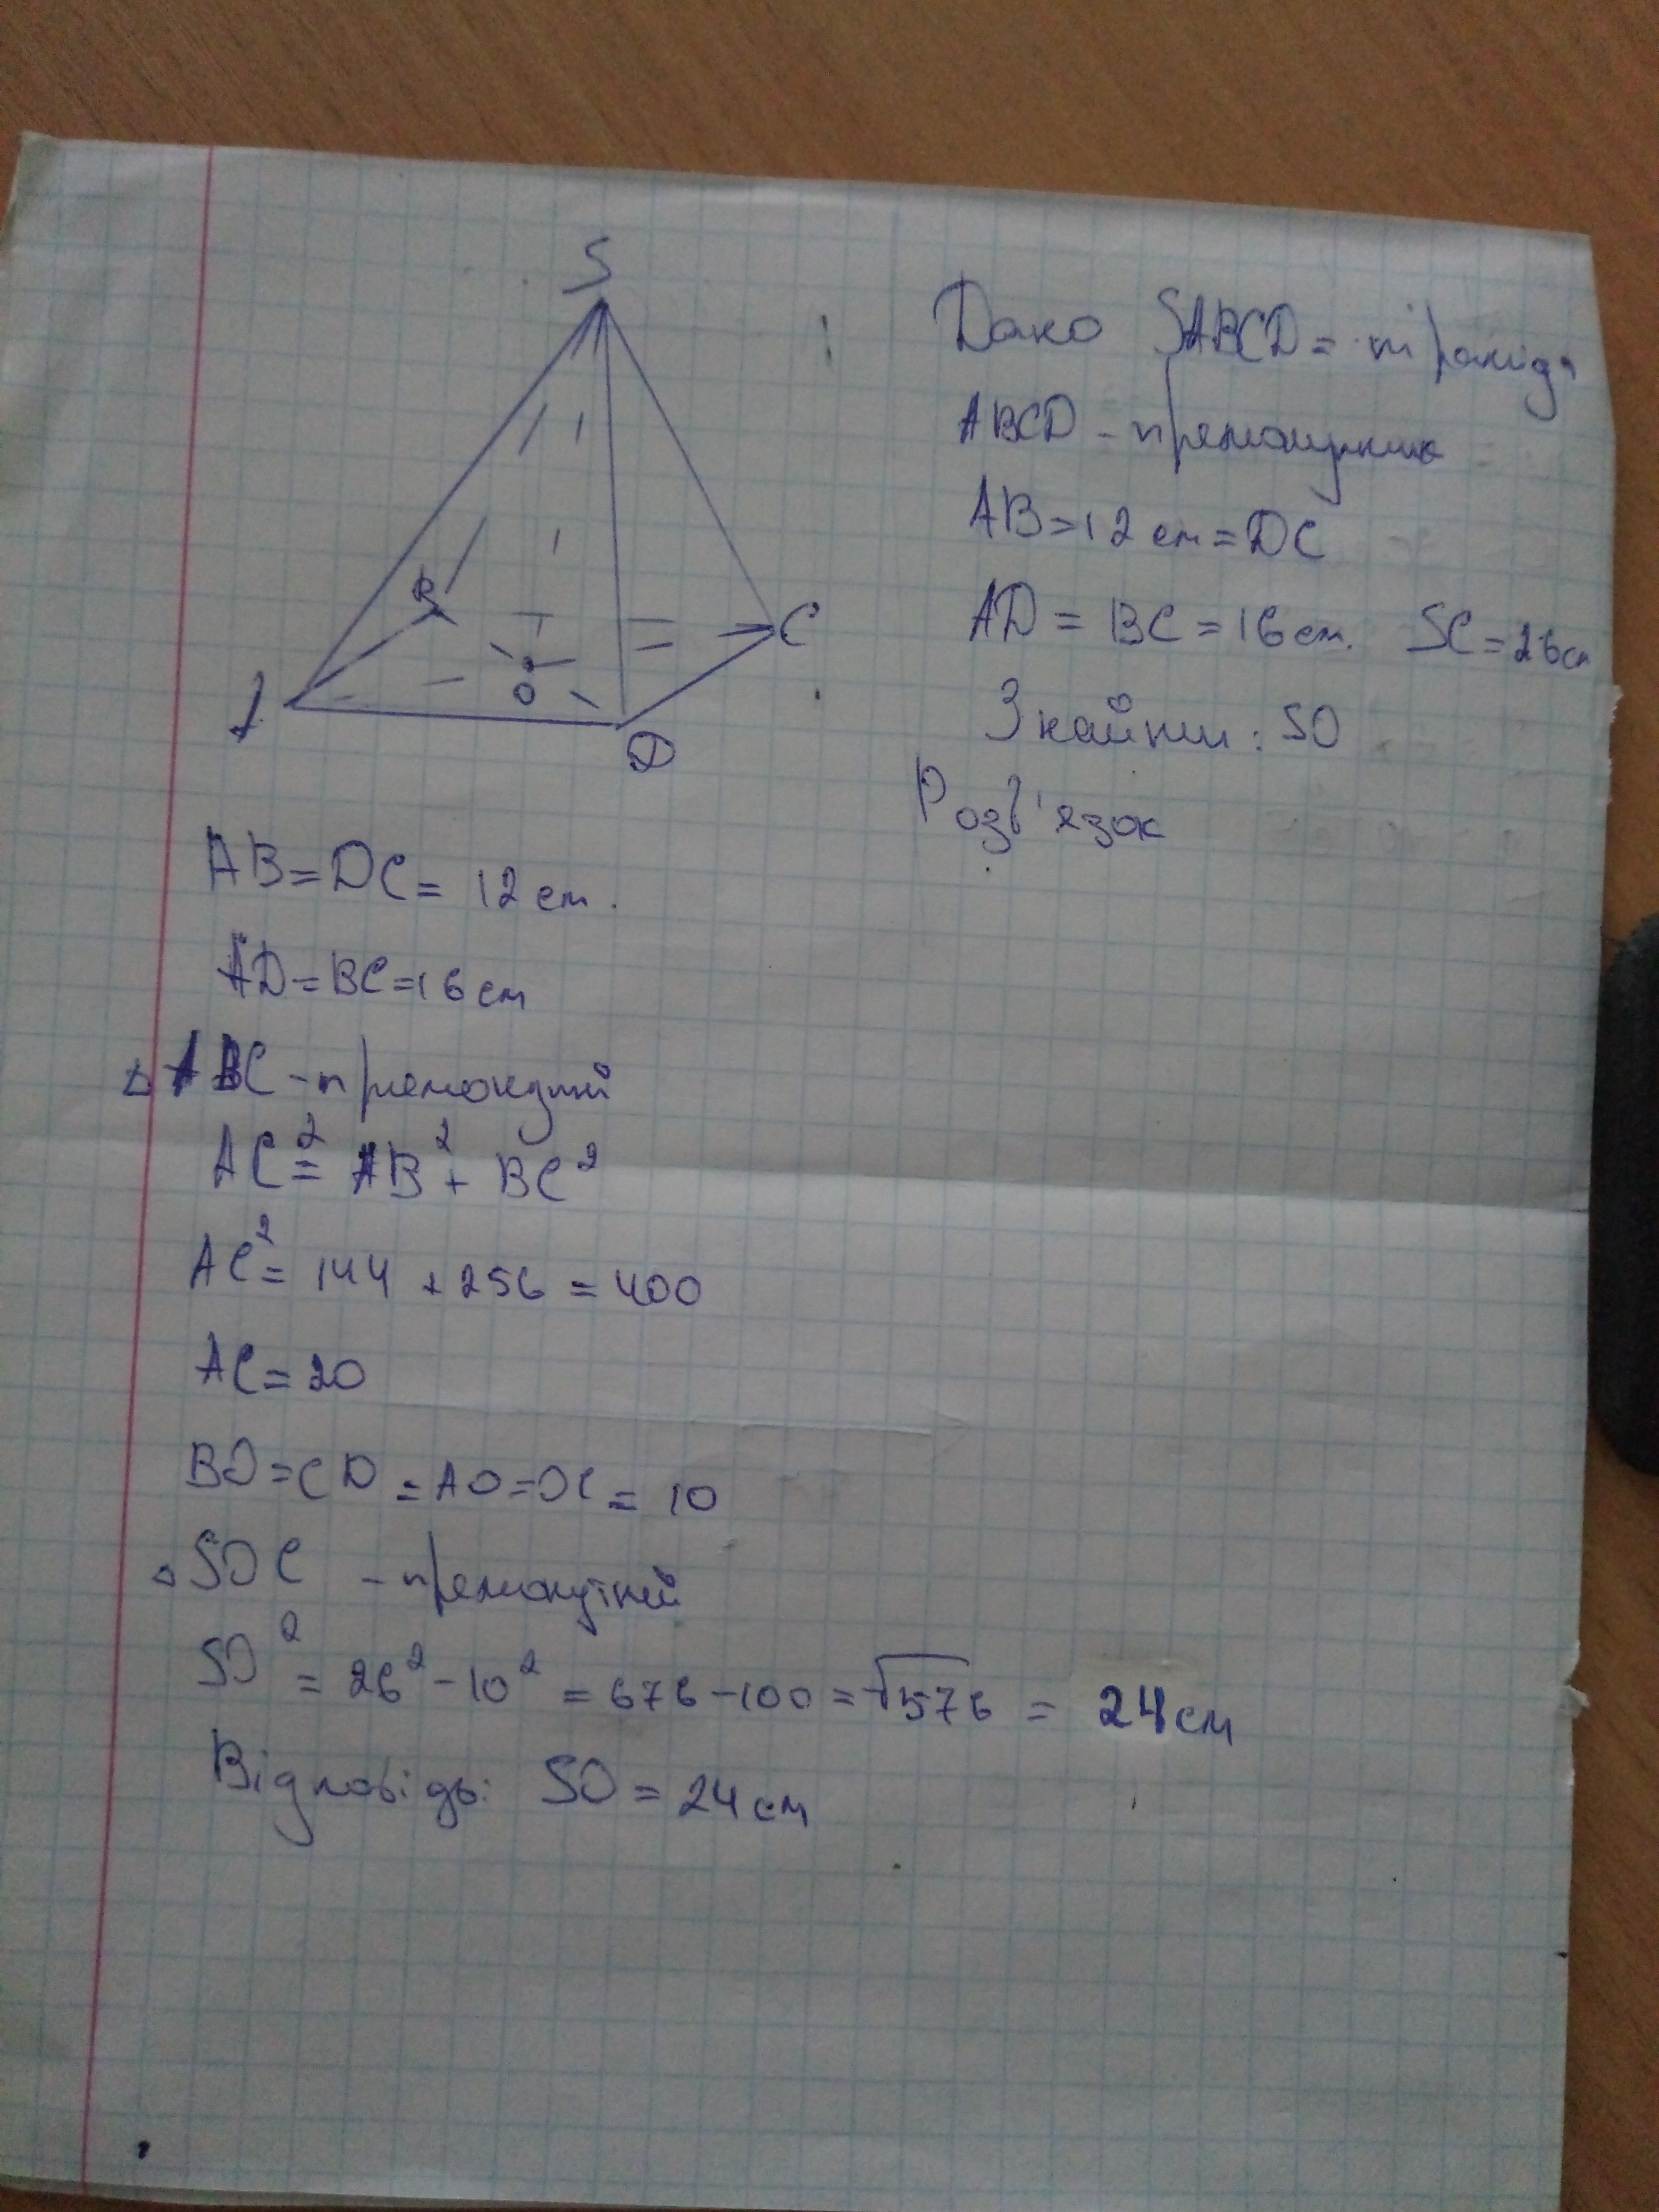 S
Дано SABCD = піраміда
ABCD - прямокутник
AB = 12 см = DC
AD = BC = 16 см. SC = 26 см
Знайти: SO
Розв'язок
B
C
A
O
D
AB = DC = 12 см.
AD = BC = 16 см
△ ABC - прямокутний
AC² = AB² + BC²
AC² = 144 + 256 = 400
AC = 20
BO = CD = AO = OC = 10
△ SOC - прямокутний
SO² = 26² - 10² = 676 - 100 = √576 = 24 см
Відповідь: SO = 24 см